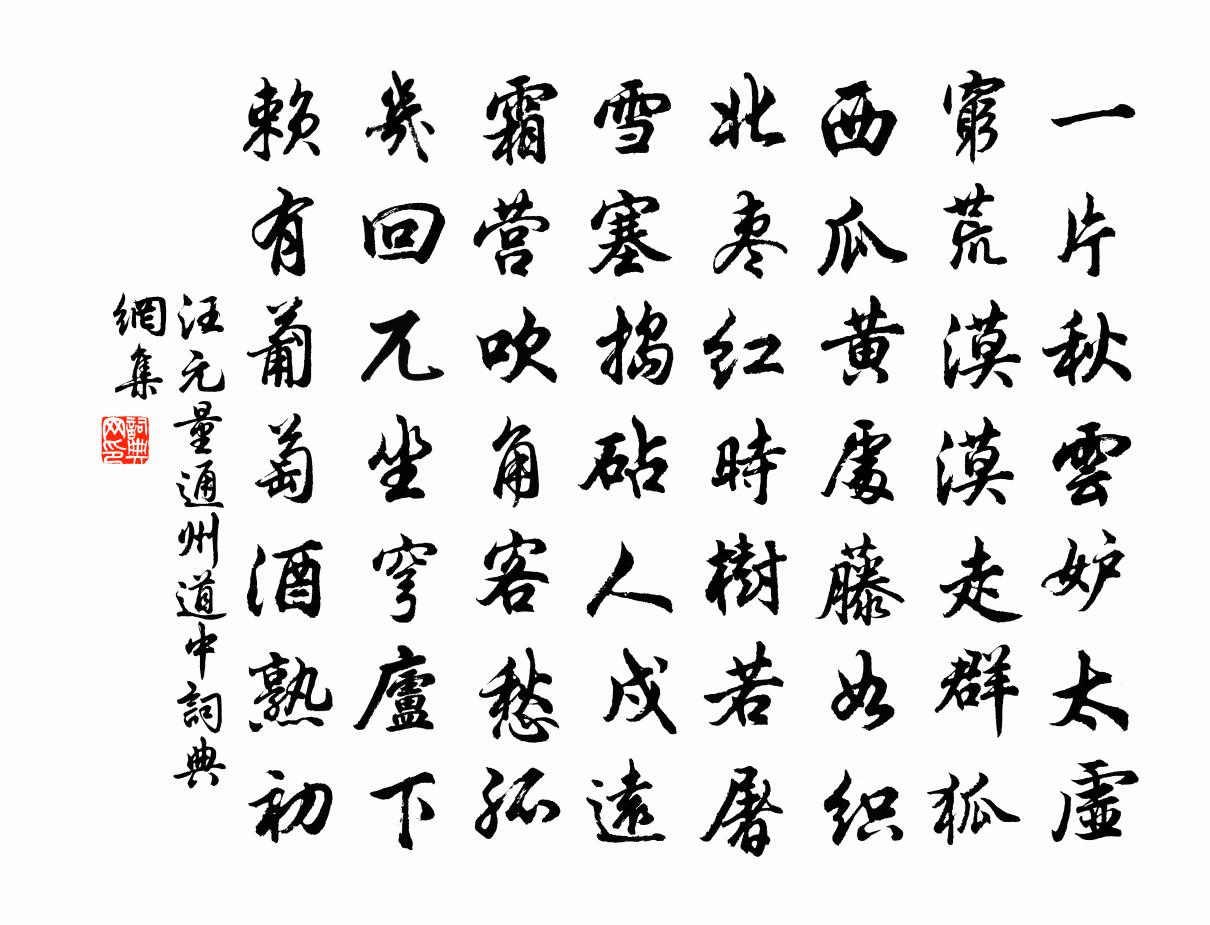 一片秋雲妒太虛
窮荒漠漠走群狐
西瓜黄處藤如织
北枣红時樹若屠
雪塞搗砧人戍遠
霜营吹角客愁孤
幾回兀坐穹廬下
賴有葡萄酒熟初
汪元量通州道中詞典
網集
詞典
网印